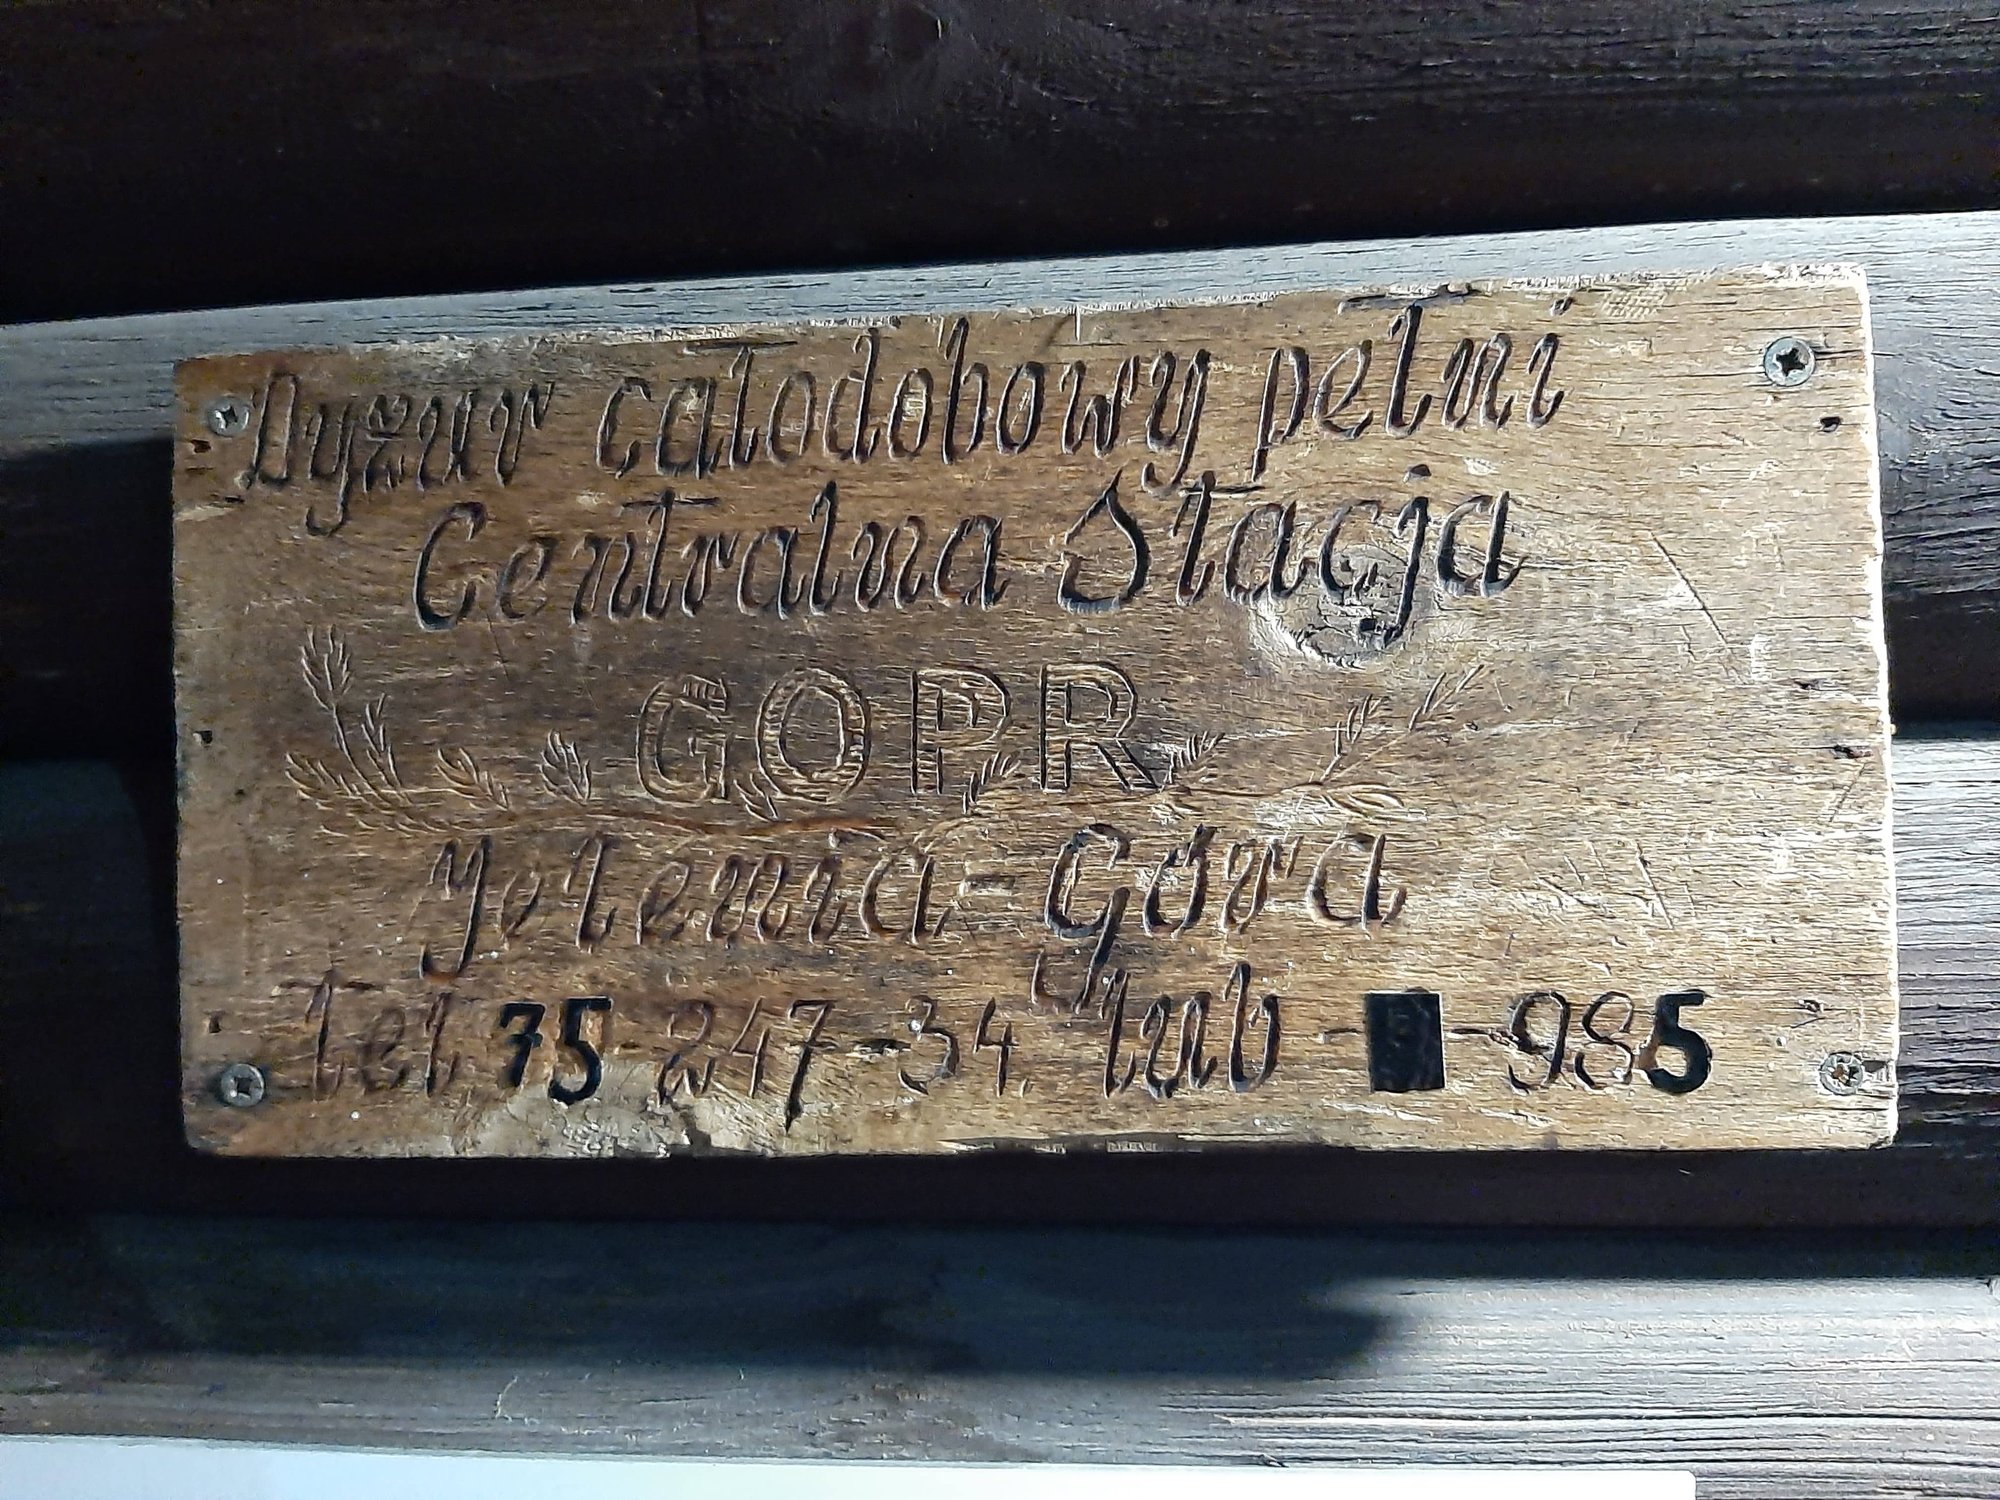 Dyżur całodobowy pełni
Centralna Stacja
GOPR
Jelenia-Góra
tel. 75 247-34. lub - -985